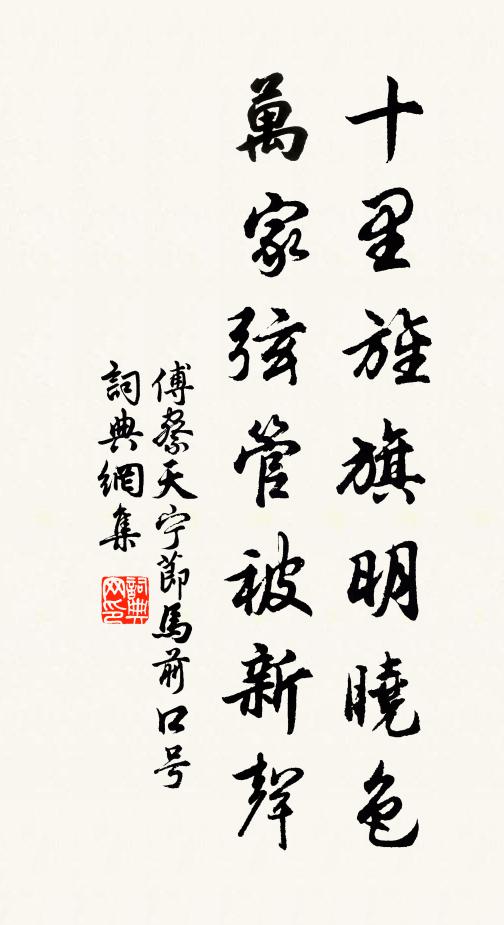 十里旌旗明曉色
萬家弦管被新聲
傅察天宁節馬前口号
詞典網集
詞典网印